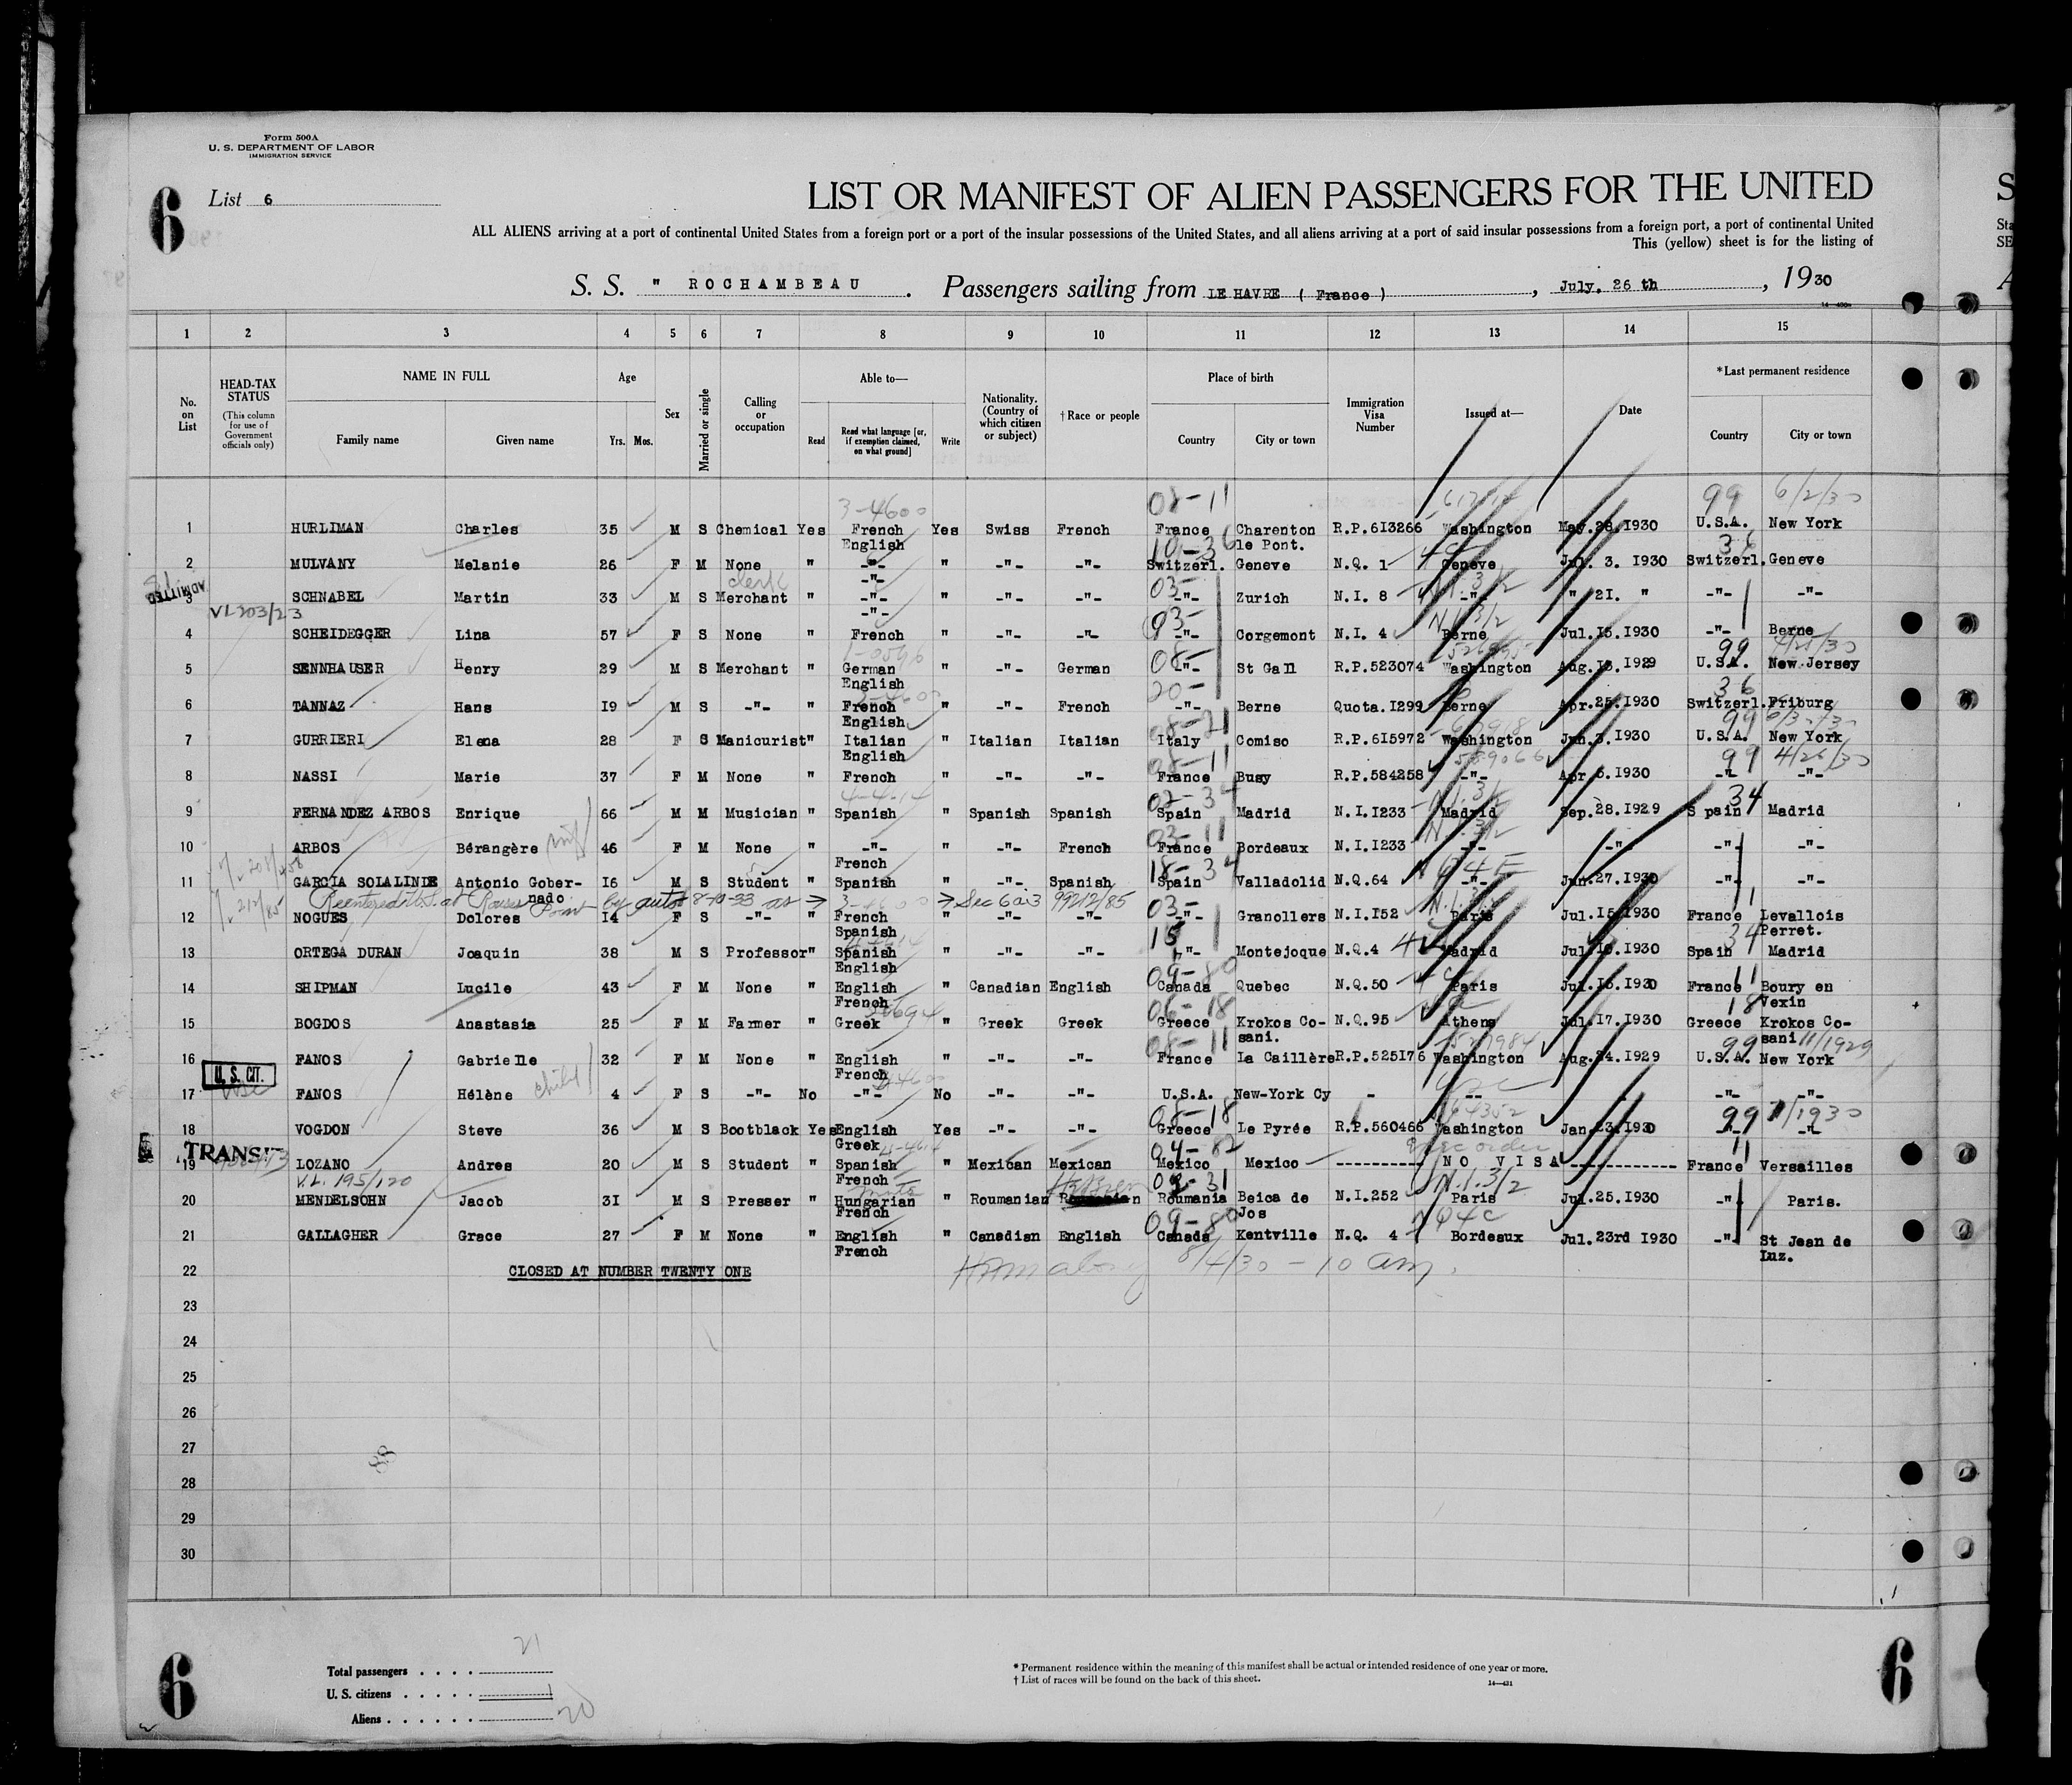 Form 500A
U. S. DEPARTMENT OF LABOR
IMMIGRATION SERVICE
6
List 6
LIST OR MANIFEST OF ALIEN PASSENGERS FOR THE UNITED
S
ALL ALIENS arriving at a port of continental United States from a foreign port or a port of the insular possessions of the United States, and all aliens arriving at a port of said insular possessions from a foreign port, a port of continental United
Sta
This (yellow) sheet is for the listing of
SE
S. S. " ROCHAMBEAU . Passengers sailing from LE HAVRE ( France ) , July. 26 th , 1930
1 2 3 4 5 6 7 8 9 10 11 12 13 14 15
No. on List
HEAD-TAX STATUS (This column for use of Government officials only)
NAME IN FULL
Family name Given name
Age
Yrs. Mos.
Sex
Married or single
Calling or occupation
Able to—
Read
Read what language [or, if exemption claimed, on what ground]
Write
Nationality. (Country of which citizen or subject)
†Race or people
Place of birth
Country City or town
Immigration Visa Number
Issued at—
Date
*Last permanent residence
Country City or town
3-4600 08-11 99 6/2/30
1 HURLIMAN Charles 35 M S Chemical Yes French Yes Swiss French France Charenton R.P.6I3266 Washington May.28.I930 U.S.A. New York
English le Pont.
2 MULVANY Melanie 26 F M None " -"- " -"- -"- Switzerl. Geneve N.Q. 1 Geneve 3. I930 Switzerl. Geneve
clerk -"-
ADMITTED
3 SCHNABEL Martin 33 M S Merchant " -"- " -"- -"- -"- Zurich N.I. 8 -"- " 2I. " -"- -"-
VL 203/23 -"-
4 SCHEIDEGGER Lina 57 F S None " French " -"- -"- -"- Corgemont N.I. 4 Berne Jul.I5.I930 -"- Berne
5 SENNHAUSER Henry 29 M S Merchant " German " -"- German -"- St Gall R.P.523074 Washington Aug.I3.I929 U.S.A. New Jersey
English
6 TANNAZ Hans I9 M S -"- " French " -"- French -"- Berne Quota.I299 Berne Apr.25.I930 Switzerl. Friburg
English
7 GURRIERI Elena 28 F S Manicurist " Italian " Italian Italian Italy Comiso R.P.6I5972 Washington Jun.3.I930 U.S.A. New York
English
8 NASSI Marie 37 F M None " French " -"- -"- France Busy R.P.584258 -"- Apr 5.I930 -"- -"-
9 FERNANDEZ ARBOS Enrique 66 M M Musician " Spanish " Spanish Spanish Spain Madrid N.I.I233 Madrid Sep.28.I929 Spain Madrid
10 ARBOS Bérangère 46 F M None " -"- " -"- French France Bordeaux N.I.I233 -"- -"- -"- -"-
French
11 GARCIA SOLALINDE Antonio Gober- I6 M S Student " Spanish " -"- Spanish Spain Valladolid N.Q.64 -"- Jun.27.I930 -"- -"-
nado
Reentered U.S. at Rouses Point by auto 8-10-33 as → → Sec 6 a 3 99212/85
12 NOGUES Dolores I4 F S -"- " French " -"- -"- -"- Granollers N.I.I52 Paris Jul.I5.I930 France Levallois
Spanish Perret.
13 ORTEGA DURAN Joaquin 38 M S Professor " Spanish " -"- -"- -"- Montejoque N.Q.4 Madrid Jul.I0.I930 Spain Madrid
English
14 SHIPMAN Lucile 43 F M None " English " Canadian English Canada Quebec N.Q.50 Paris Jul.I5.I930 France Boury en
French Vexin
15 BOGDOS Anastasia 25 F M Farmer " Greek " Greek Greek Greece Krokos Co- N.Q.95 Athens Jul.I7.I930 Greece Krokos Co-
sani. sani
16 FANOS Gabrielle 32 F M None " English " -"- -"- France La Caillère R.P.525I76 Washington Aug.24.I929 U.S.A. New York
French
U. S. CIT.
17 FANOS Hélène child 4 F S -"- No -"- No -"- -"- U.S.A. New-York Cy - -- -"- -"-
18 VOGDON Steve 36 M S Bootblack Yes English Yes -"- -"- Greece Le Pyrée R.P.560466 Washington Jan.23.I930 -"- -"-
Greek
TRANSIT
19 LOZANO Andres 20 M S Student " Spanish " Mexican Mexican Mexico Mexico ---------- NO VISA ------------ France Versailles
V.L. 195/120 French
20 MENDELSOHN Jacob 3I M S Presser " Hungarian " Roumanian Hebrew Roumania Beica de N.I.252 Paris Jul.25.I930 -"- Paris.
French Jos
21 GALLAGHER Grace 27 F M None " English " Canadian English Canada Kentville N.Q. 4 Bordeaux Jul.23rd I930 -"- St Jean de
French Luz.
22 CLOSED AT NUMBER TWENTY ONE 8/4/30 - 10 am.
23
24
25
26
27
28
29
30
Total passengers . . . . 21
U. S. citizens . . . . . 1
Aliens . . . . . . 20
* Permanent residence within the meaning of this manifest shall be actual or intended residence of one year or more.
† List of races will be found on the back of this sheet.
14—431
6
6